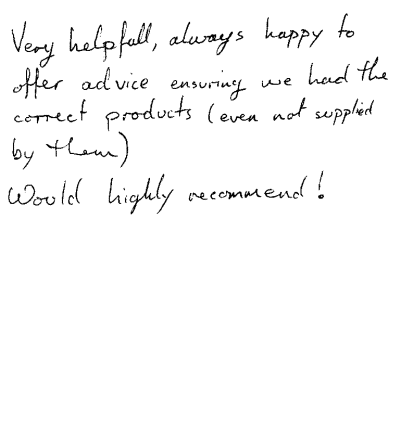 Very helpfull, always happy to
offer advice ensuring we had the
correct products (even not supplied
by them)
Would highly recommend!